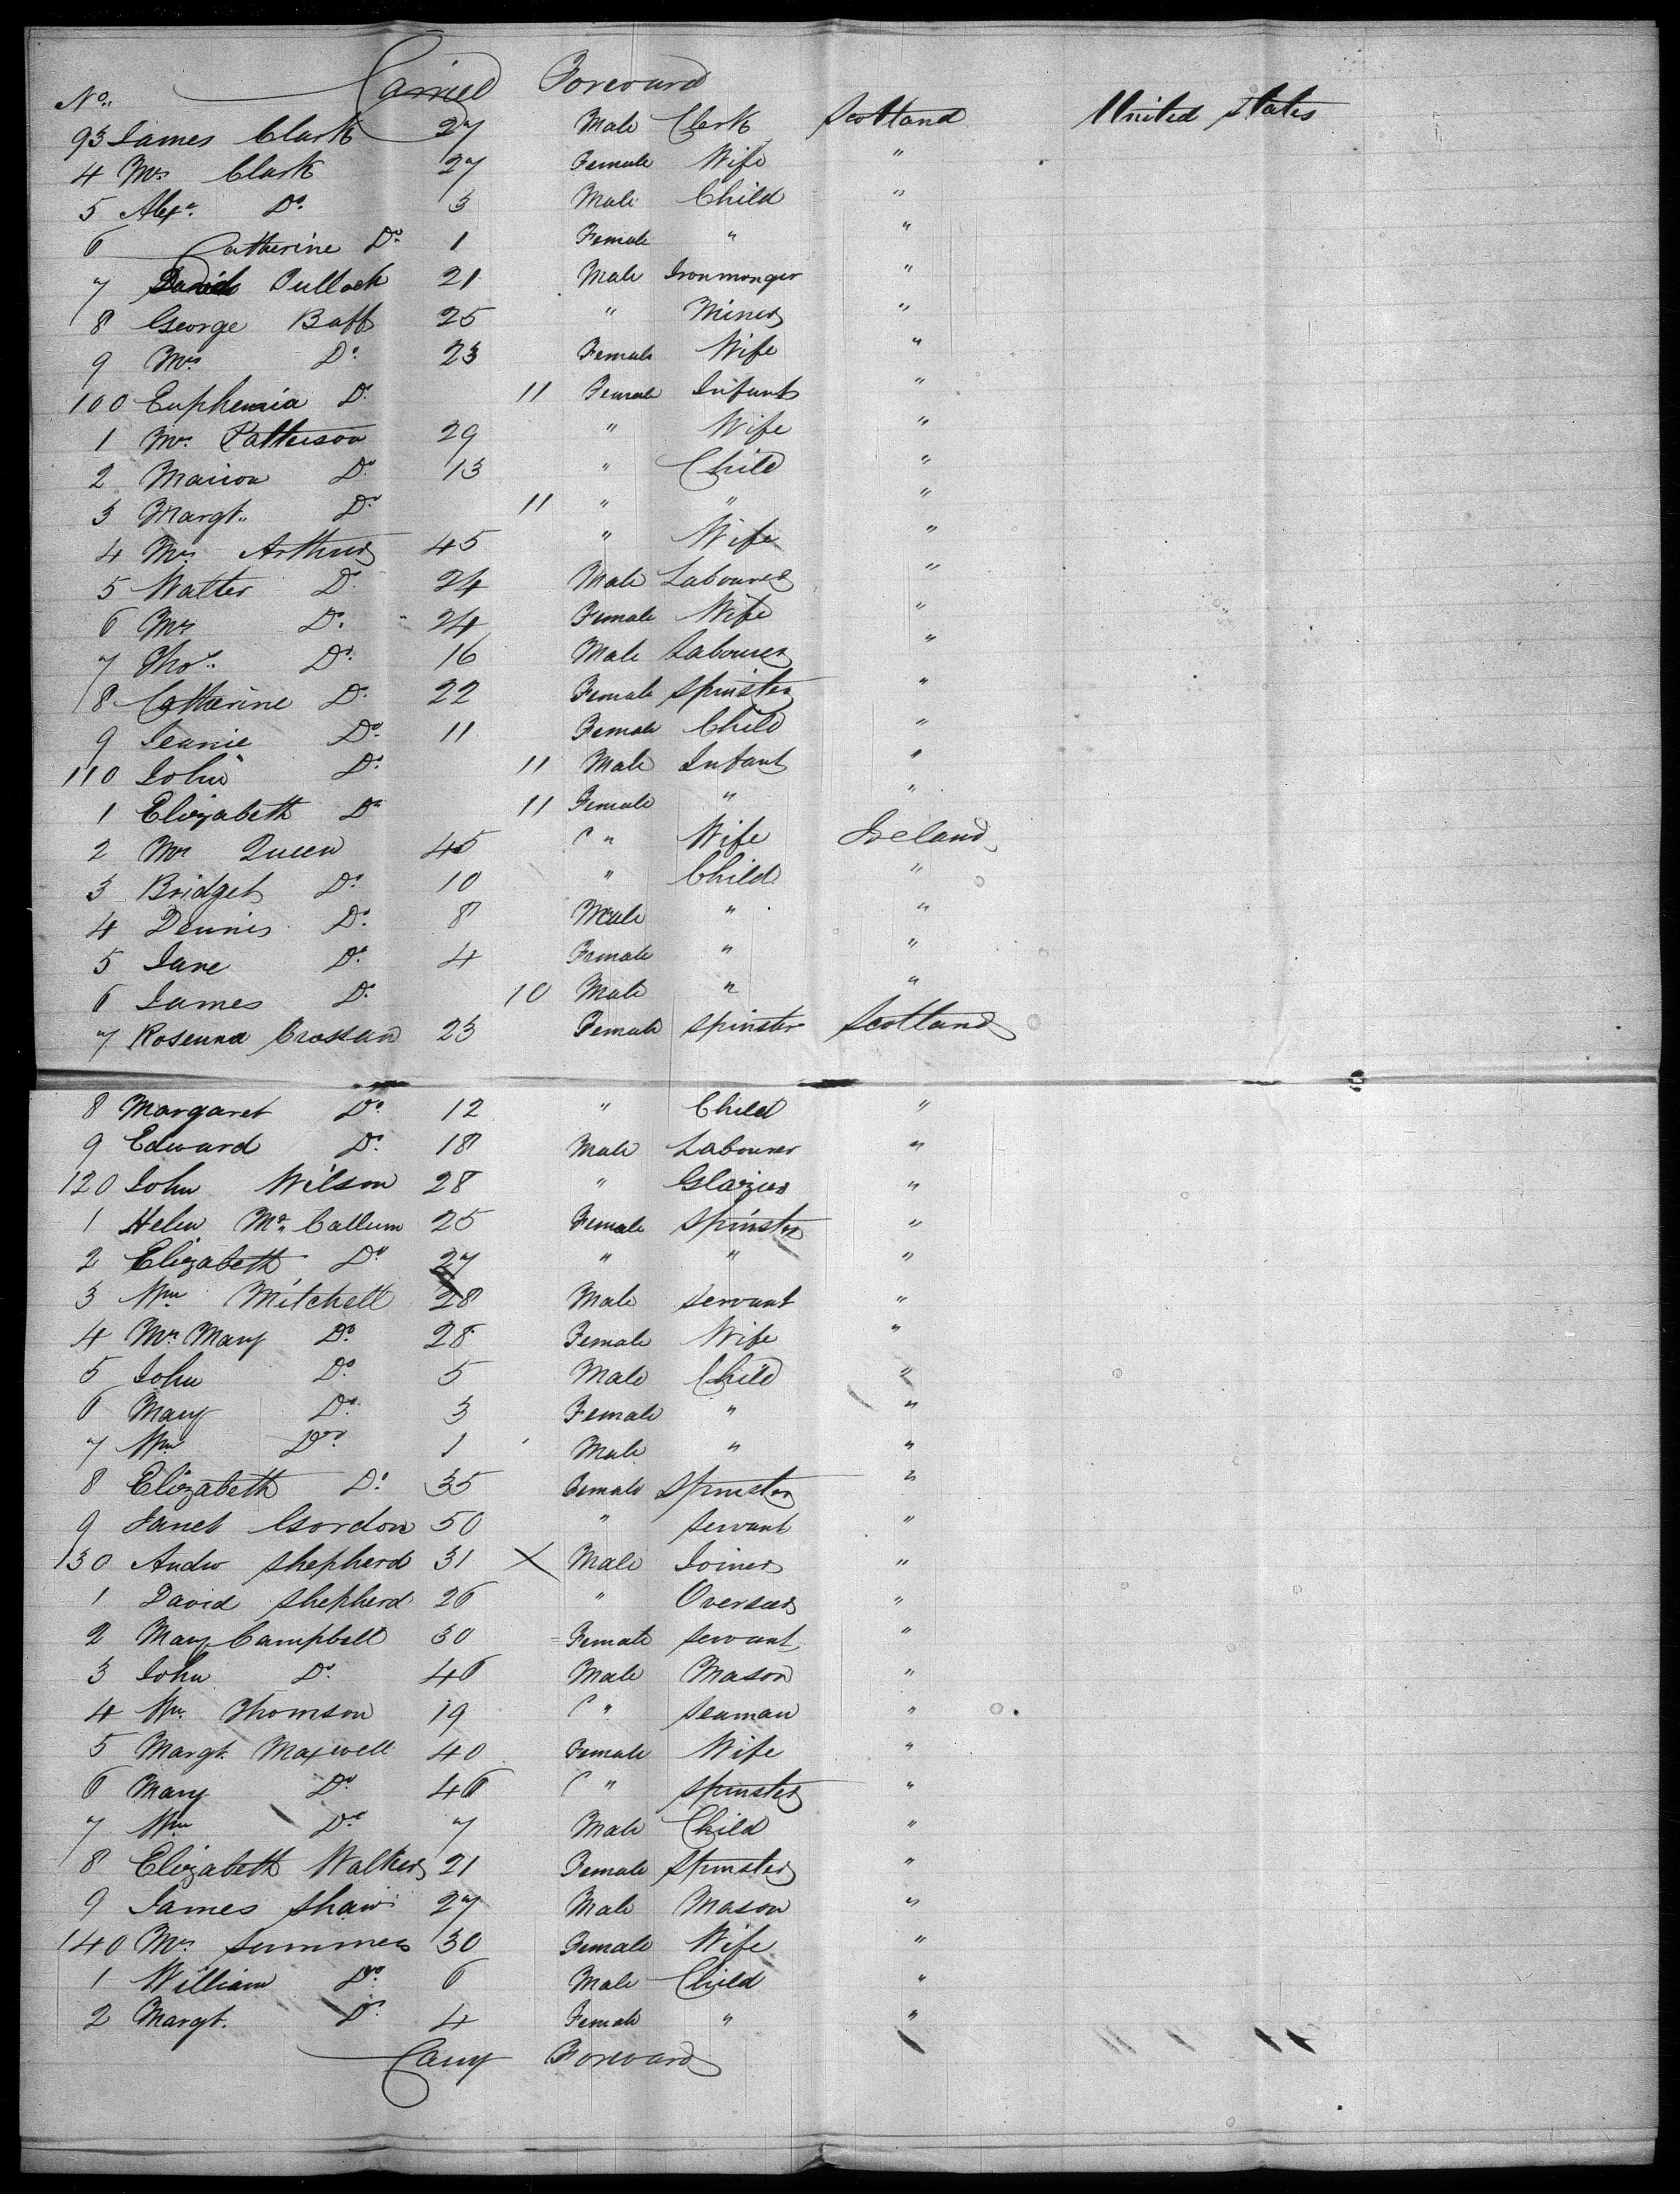 Carried Foreward
No.
93 James Clark 27 Male Clerk Scotland United States
4 Mrs Clark 27 Female Wife "
5 Alexr. Do. 3 Male Child "
6 Catherine Do. 1 Female " "
7 David Tullock 21 Male Ironmonger "
8 George Baff 25 " Miner "
9 Mrs Do. 23 Female Wife "
100 Euphemia Do. 11 Female Infant "
1 Mrs. Patterson 29 " Wife "
2 Marion Do. 13 " Child "
3 Margt. Do. 11 " " "
4 Mrs. Arthur 45 " Wife "
5 Walter Do. 24 Male Labourer "
6 Mrs Do. 24 Female Wife "
7 Thos. Do. 16 Male Labourer "
8 Catherine Do. 22 Female Spinster "
9 Jeanie Do. 11 Female Child "
110 John Do. 11 Male Infant "
1 Elizabeth Do 11 Female " "
2 Mrs Queen 45 " Wife Ireland
3 Bridget Do. 10 " Child "
4 Dennis Do. 8 Male " "
5 Jane Do. 4 Female " "
6 James Do. 10 Male " "
7 Rosenna Crossan 23 Female Spinster Scotland
8 Margaret Do. 12 " Child "
9 Edward Do. 18 Male Labourer "
120 John Wilson 28 " Glazier "
1 Helen Mc. Callum 25 Female Spinster "
2 Elizabeth Do 27 " " "
3 Wm Mitchell 28 Male Servant "
4 Mrs Mary Do. 28 Female Wife "
5 John Do. 5 Male Child "
6 Mary Do. 3 Female " "
7 Wm Do. 1 Male " "
8 Elizabeth Do. 35 Female Spinster "
9 Janet Gordon 50 " Servant "
130 Andw Shepherd 31 X Male Joiner "
1 David Shepherd 26 " Overseer "
2 Mary Campbell 30 Female Servant "
3 John Do. 46 Male Mason "
4 Wm. Thomson 19 " Seaman "
5 Margt. Maxwell 40 Female Wife "
6 Mary Do. 46 " Spinster "
7 Wm Do. 7 Male Child "
8 Elizabeth Walker 21 Female Spinster "
9 James Shaw 27 Male Mason "
140 Mrs Summers 30 Female Wife "
1 William Do. 6 Male Child "
2 Margt. Do. 4 Female " "
Carry Foreward